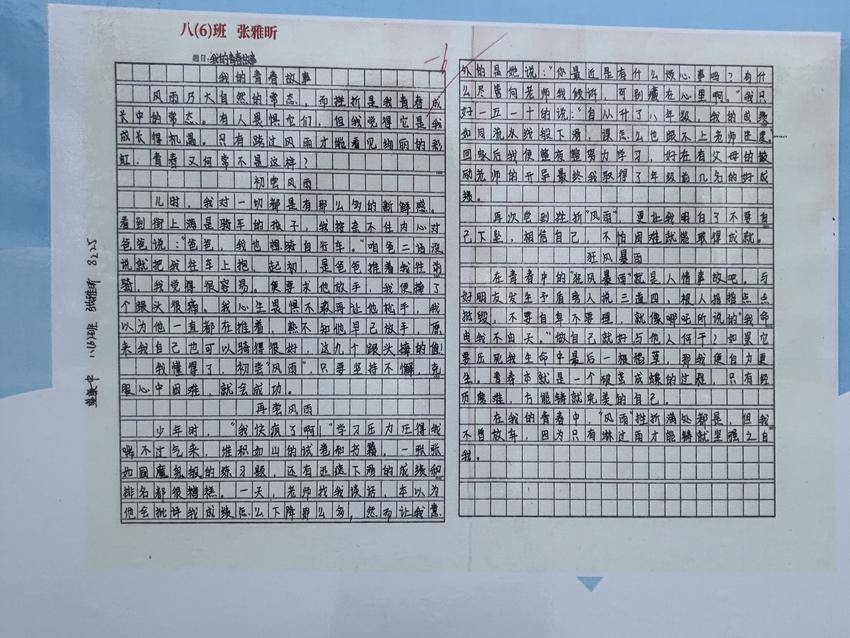 八(6)班 张雅昕
题目:我的青春故事
我的青春故事
风雨乃大自然的常态,而挫折是我青春成
长中的常态。有人畏惧它们,但我觉得它是我
成长得机遇。只有踏过风雨才能看见绚丽的彩
虹,青春又何常不是这样?
初尝风雨
儿时,我对一切都是有那么多的新鲜感。
看到街上满是骑车的孩子,我按奈不住内心对
爸爸说:“爸爸,我也想骑自行车。”咱爸二话没
说就把我往车上抱,起初,是爸爸推着我往前
骑,我觉得很容易。便要求他放手,我便摔了
个跟头很痛。我心生畏惧不敢再让他松手,我
以为他一直都在推着,熟不知他早已放手,原
来我自己也可以骑得很好,这几个跟头摔的值!
我懂得了,初尝“风雨”,只要坚持不懈,克
服心中困难,就会成功。
再尝风雨
少年时,“我快疯了啊!”学习压力压得我
喘不过气来,堆积如山的试卷和书籍,一张张
如同魔鬼般的练习题,还有迅速下滑的成绩和
排名都很糟糕。一天,老师找我谈话,本以为
他会批评我成绩怎么下降那么多,然而让我意
外的是她说:“你最近是有什么烦心事吗?有什
么尽管向老师我倾诉,可别藏在心里啊。”我只
好一五一十的说:“自从升了八年级,我的成绩
如同流水般下滑,课怎么也跟不上老师进度。
回家后我便整夜整努力学习,好在有父母的鼓
励老师的开导最终我取得了年级前几名的好成
绩。
再次尝到挫折“风雨”,更让我明白了不要自
己下坠,相信自己,不怕困难就能取得成就。
狂风暴雨
在青春中的“狂风暴雨”就是人情事故吧。与
好朋友发生矛盾旁人说三道四,被人指指点点
诋毁,不要自卑不要理,就像哪吒所说的“我命
由我不由天。”做自己就好与他人何干?如果它
要压死我生命中最后一根稻草,那我便自力更
生。青春本就是一个破茧成蝶的过程,只有经
历魔难,方能铸就完美的自己。
在我的青春中,“风雨”挫折满处都是,但我
不曾放弃,因为只有淋过雨才能铸就坚强之自
我。
八(6)班 张雅昕 8225